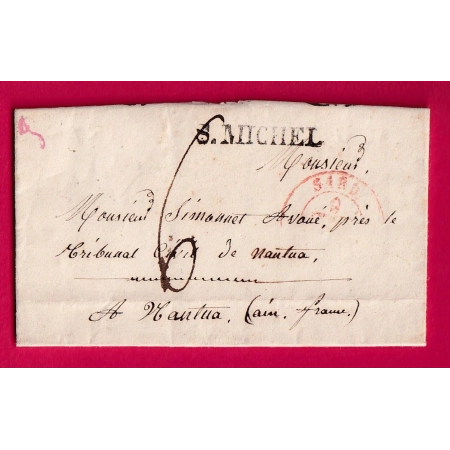 S. MICHEL
Monsieur,
SARD
Monsieur Simonnet Avoué, près le
tribunal Civil de Nantua,
6
A Nantua, (ain, france.)